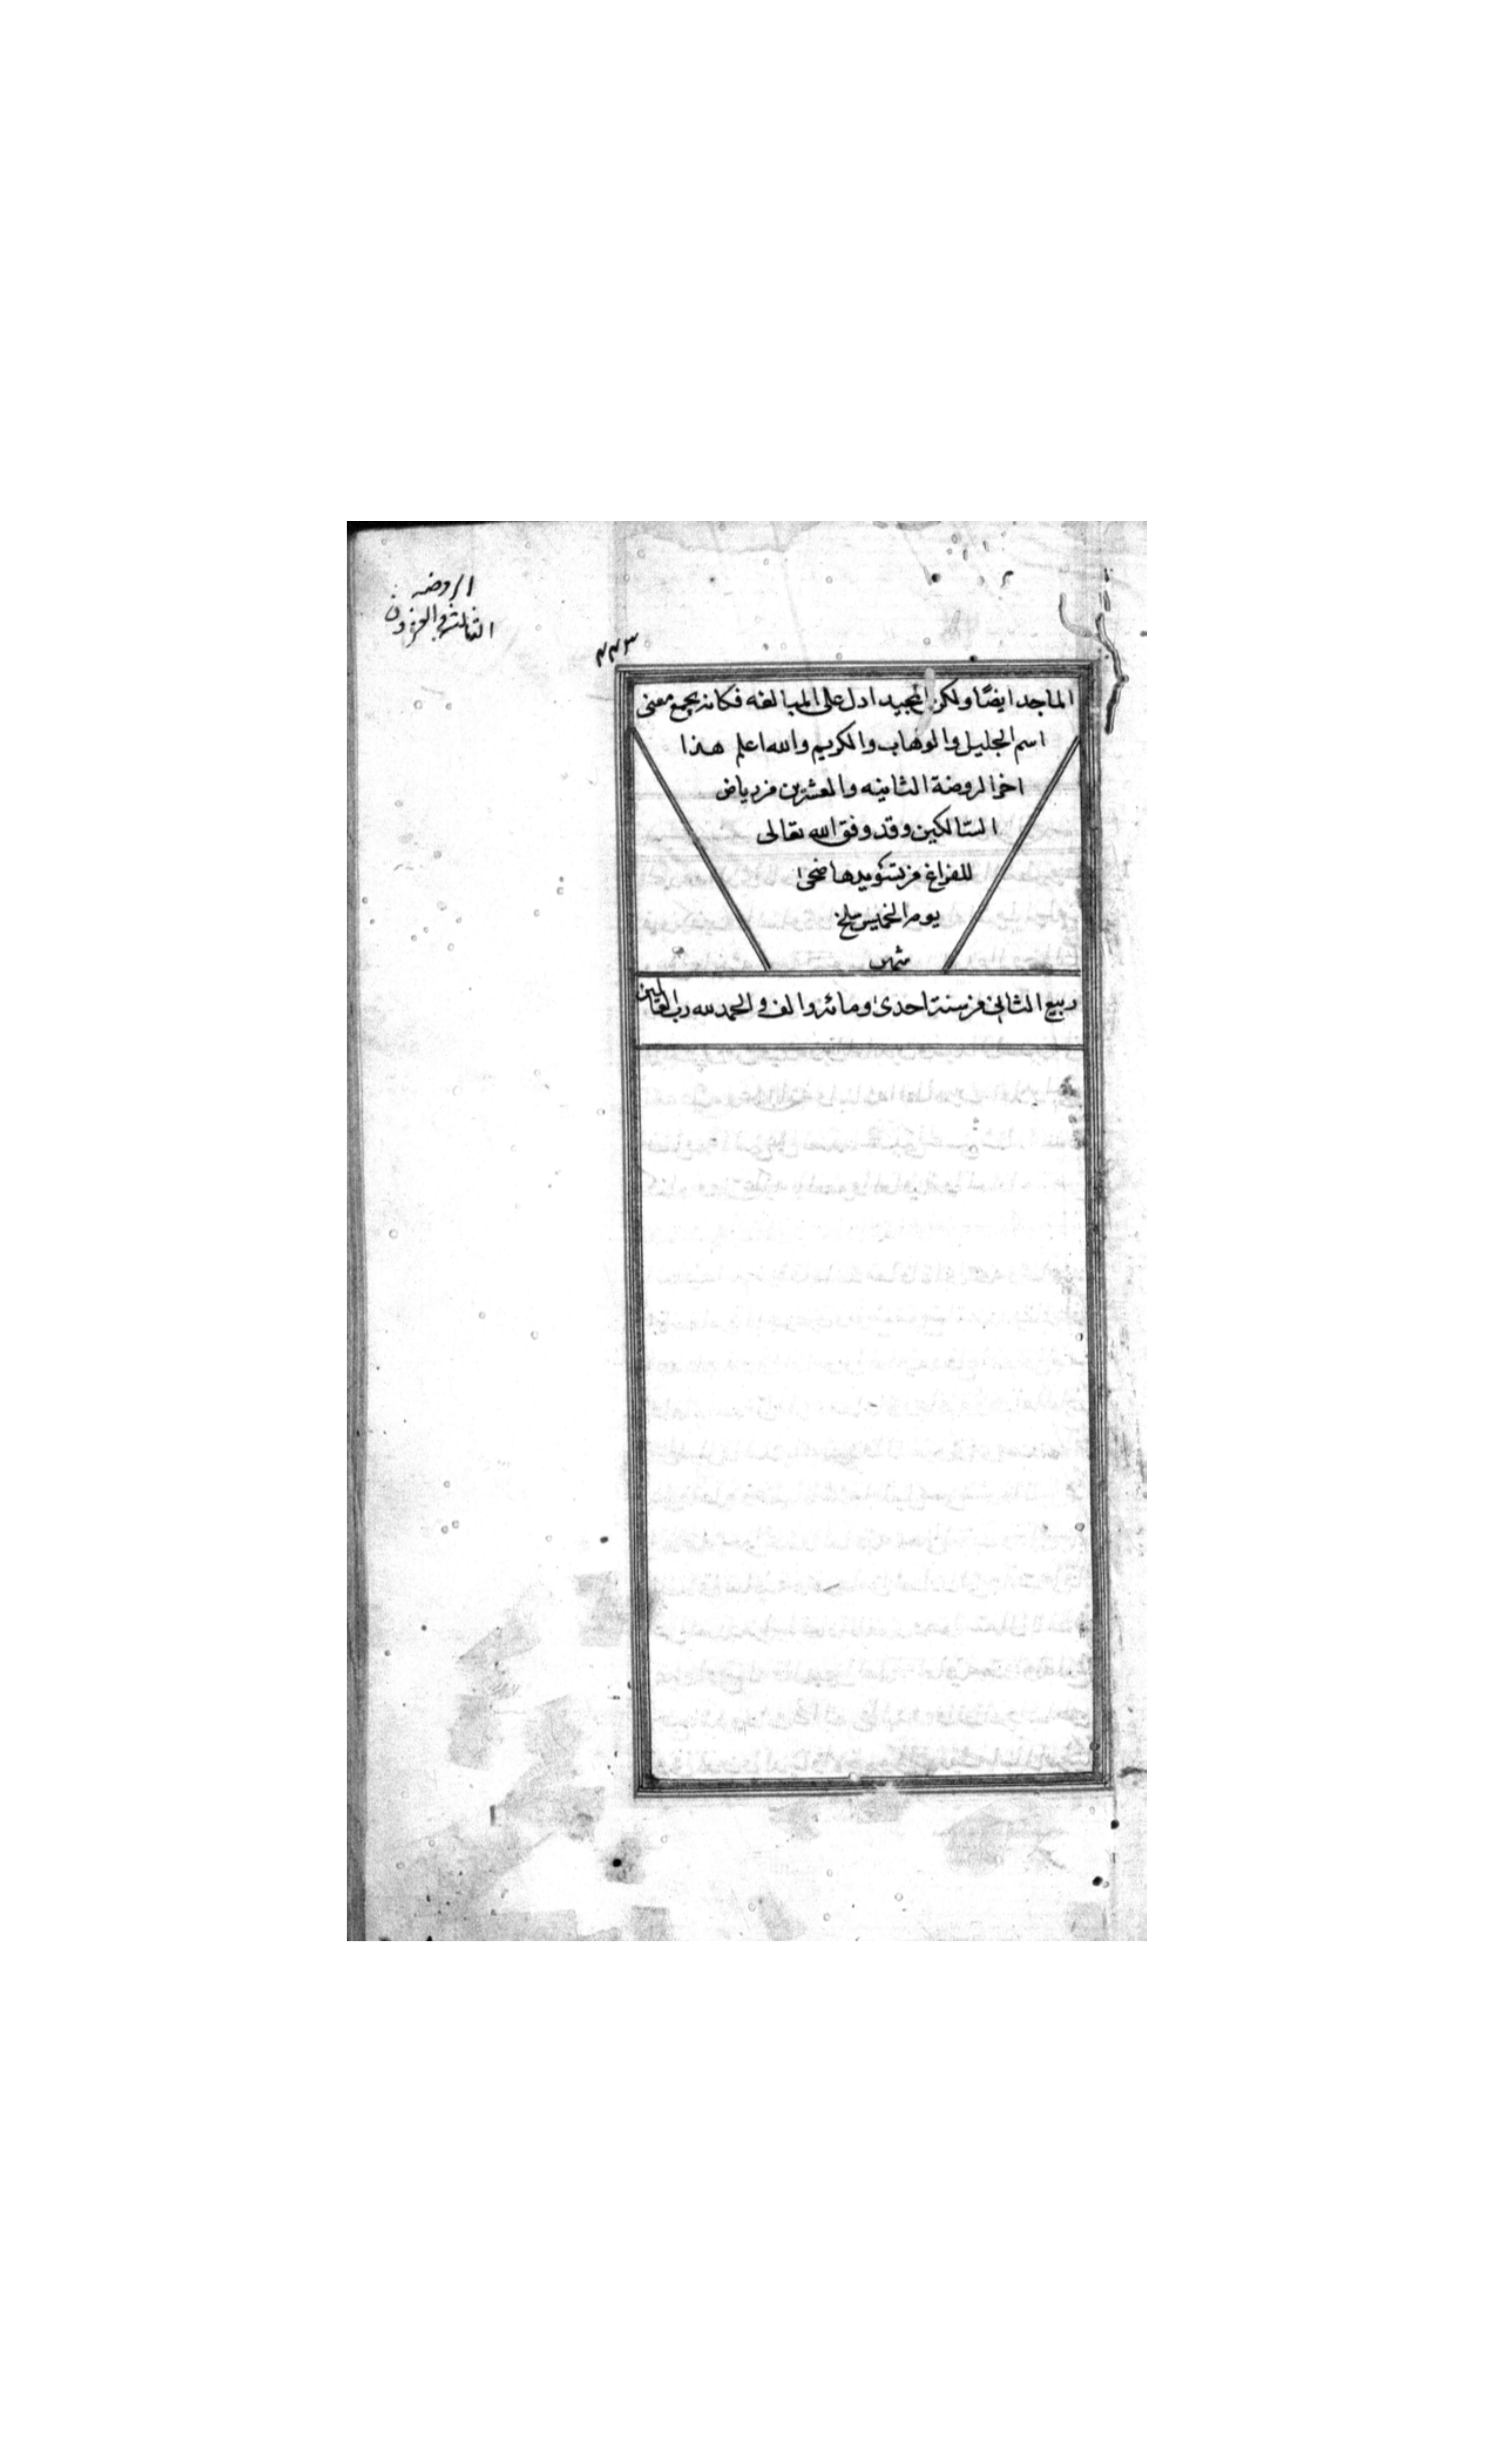 الروضه
الثالثة والعشرون
٤٤٣
الماجد ايضًا ولكن المجيد ادل على المبالغه فكانه يجمع معنى
اسم الجليل والوهاب والكريم والله اعلم هذا
اخر الروضة الثانيه والعشرين من رياض
السّالكين وقد وفق الله تعالى
للفراغ من تسويدها ضحى
يوم الخميس سلخ
شهر
ربيع الثاني من سنة احدى ومائة والف والحمد لله رب العالمين